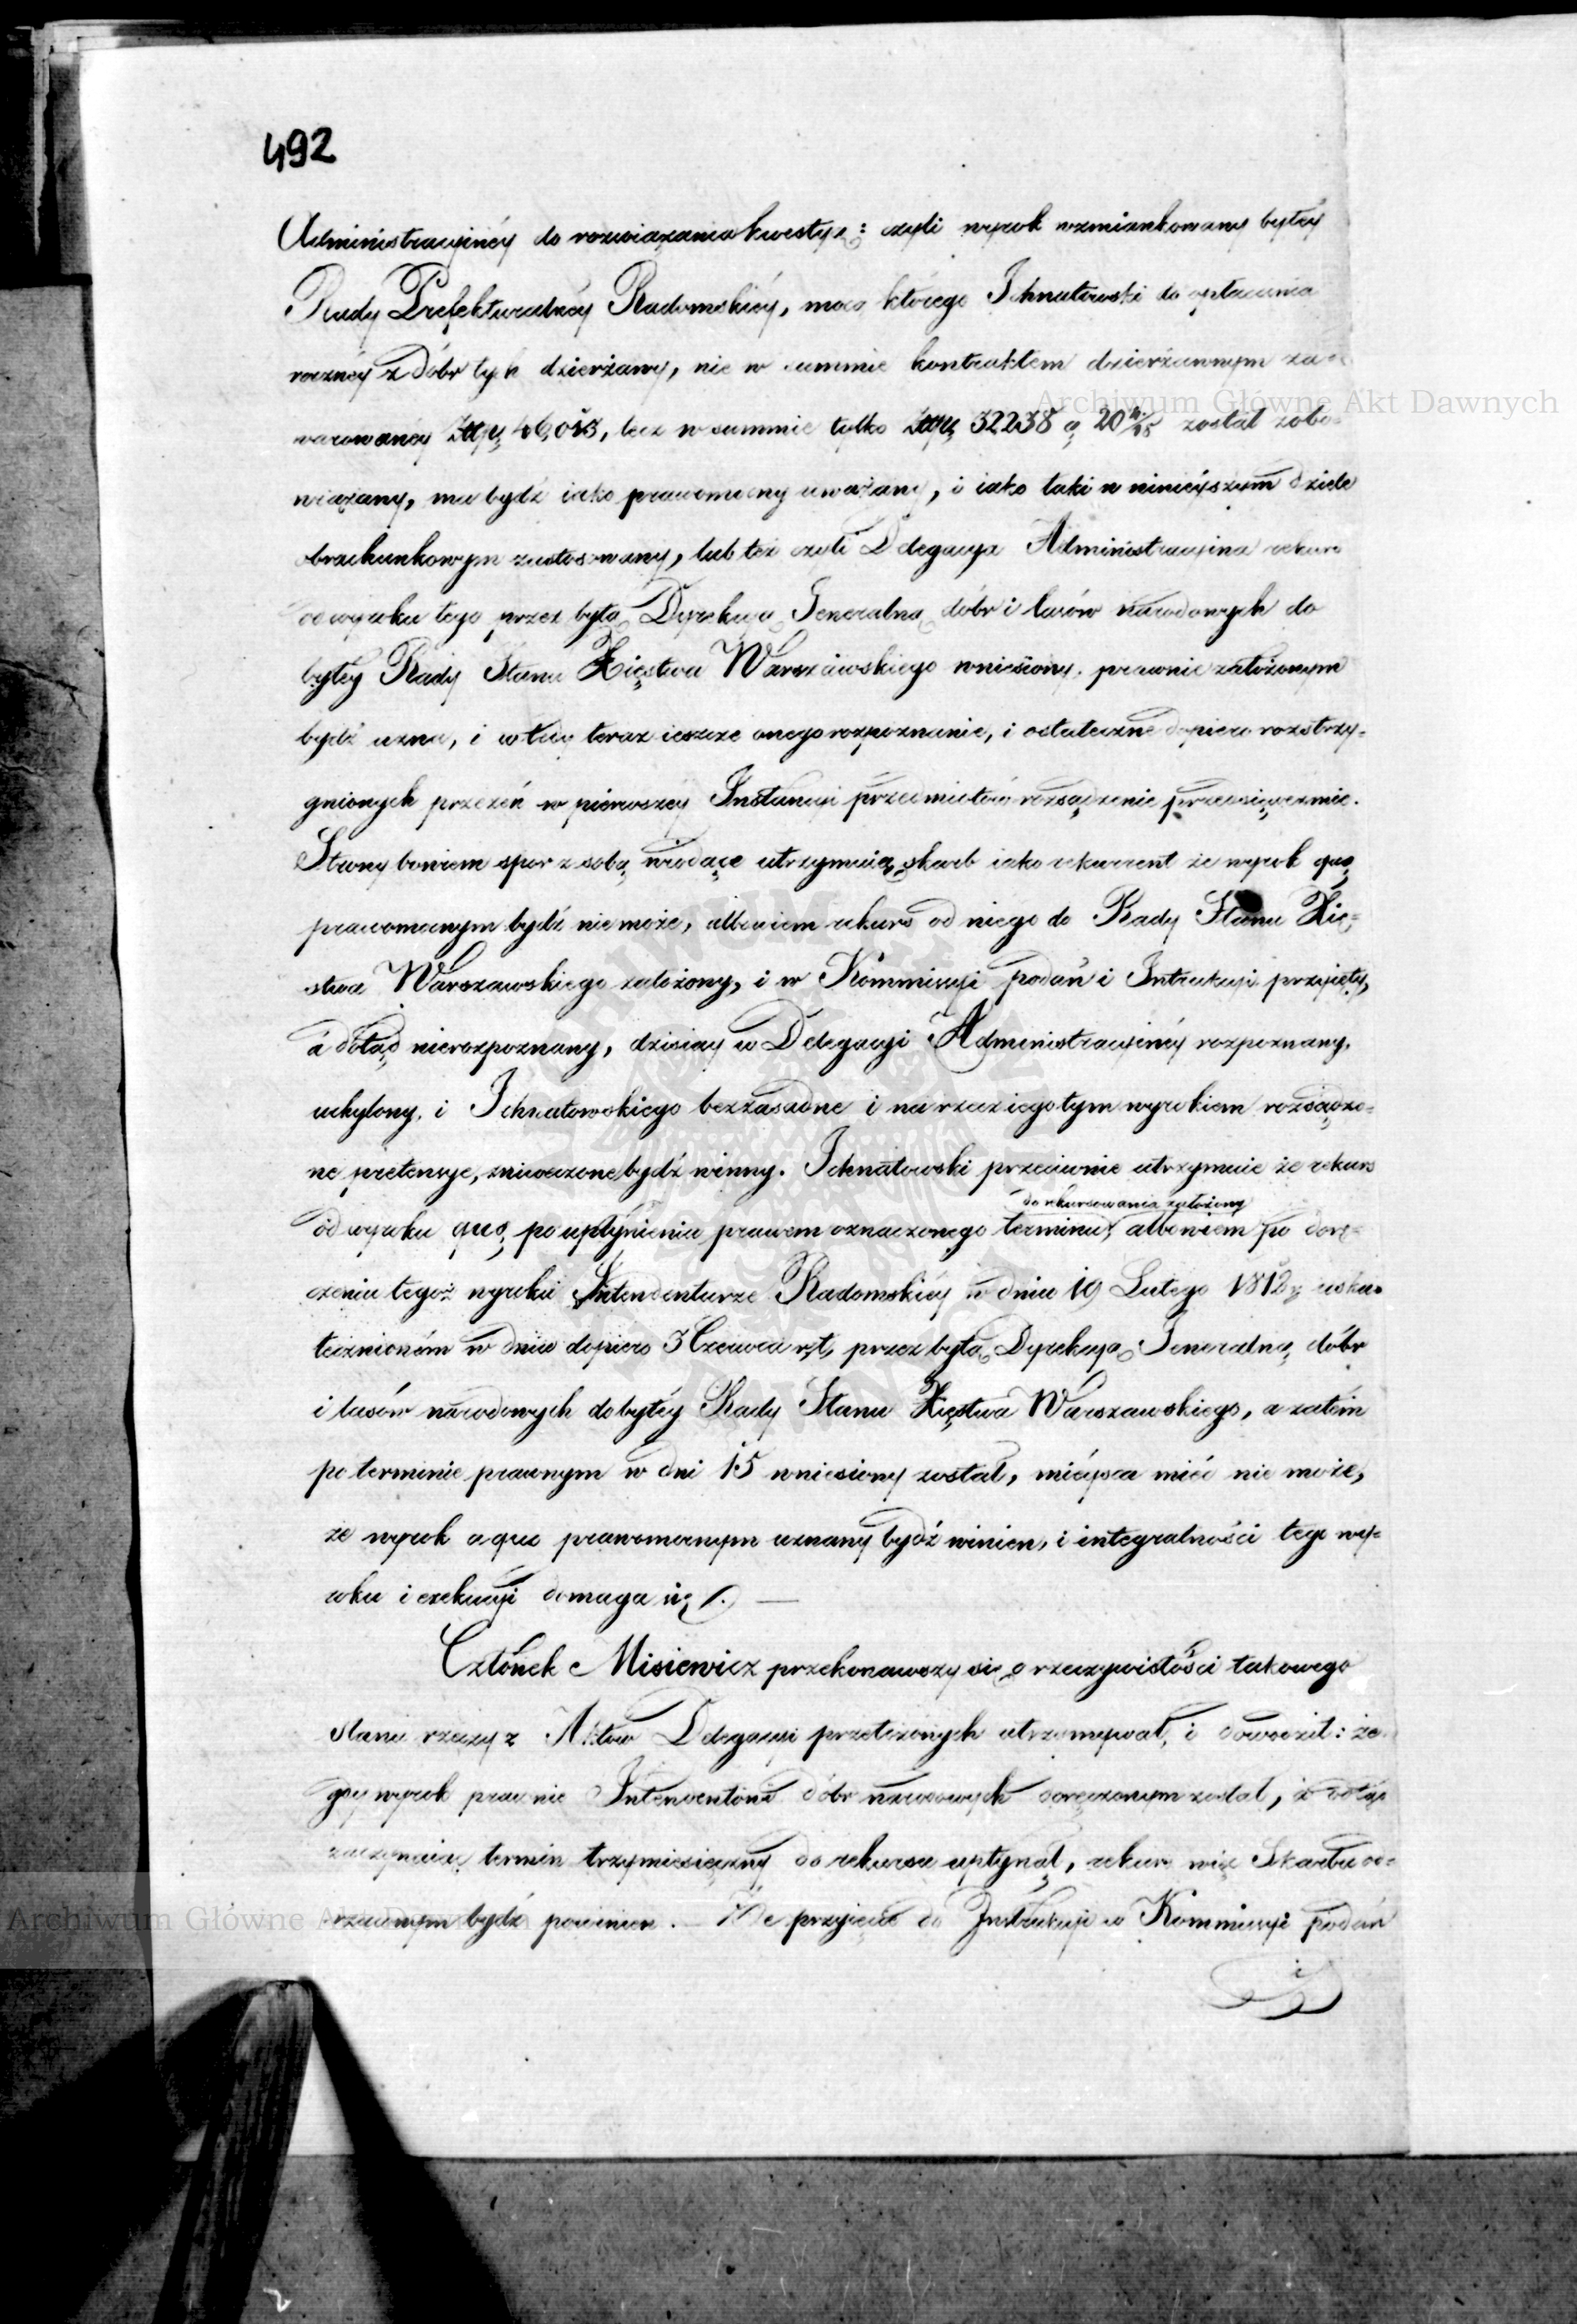 492
Administracyinéy do rozwiązania kwestyą: czyli wyrok wzmiankowany byłéy
Rady Prefekturalnéy Radomskiéy, mocą którego Ichnatowski do opłacania
rocznéy z dóbr tych dzierżawy, nie w summie kontraktem dzierżawnym za-
warowanéy Złp, lecz w summie tylko Złp 32238 g 20 został zobo-
wiązany, ma bydź iako prawomocny uważany, i iako taki w ninieyszym dziele
obrachunkowym zastosowany, lub też czyli Delegacya Administracyina rekurs
od wyroku tego przez byłą Dyrekcyą Jeneralną dóbr i lasów narodowych do
byłéy Rady Stanu Xięstwa Warszawskiego wniesiony, prawnie założonym
bydź uzna, i w tedy teraz ieszcze onego rozpoznanie, i ostateczne dopiero rozstrzy-
gnionych przezeń w pierwszéy Instancyi przedmiotów rozsądzenie przedsięweźmie.
Strony bowiem spór z sobą wiodące utrzymuią, skarb iako rekurrent że wyrok quo
prawomocnym bydź nie może, albowiem rekurs od niego do Rady Stanu Xię-
stwa Warszawskiego założony, i w Kommissyi podań i Intrukcyi przyięty,
a dotąd nierozpoznany, dzisiay w Delegacyi Administracyinéy rozpoznany,
uchylony, i Ichnatowskiego bezzasadne i na rzecz iego tym wyrokiem rozsądzo-
ne pretensye, zniweczone bydź winny. Ichnatowski przeciwnie utrzymuie że rekurs
do rekursowania założony
od wyroku quo, po upłynieniu prawem oznaczonego terminu, albowiem po dorę-
czeniu tegoż wyroku Intendenturze Radomskiéy w dniu 19 Lutego 1812 r usku-
tecznioném w dniu dopiero 3 Czerwca r,t, przez byłą Dyrekcyą Jeneralną dóbr
i lasów narodowych do byłéy Rady Stanu Xięstwa Warszawskiego, a zatém
po terminie prawnym w dni 15 wniesiony został, mieysca miéć nie może,
że wyrok a quo prawomocnym uznany bydź winien, i integralności tego wy-
roku i exekucyi domaga się. —
Członek Misiewicz przekonawszy się o rzeczywistości takowego
stanu rzeczy z Aktów Delegacyi przełożonych utrzymywał, i dowodził: że
gdy wyrok prawnie Intendentowi dóbr narodowych doręczonym został, i odtąd
zaczynaiąc termin trzymiesięczny do rekursu upłynął, rekurs więc Skarbu od-
rzuconym bydź powinien. — Że przyięcie do Instrukcyi w Kommissyi podań
i
Archiwum Główne Akt Dawnych
Archiwum Główne Akt Dawnych